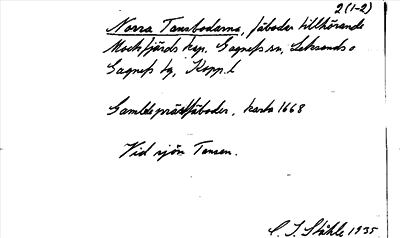 2(1-2)
Norra Tansbodarna, fäbodar tillhörande
Mockfjärds kap. Gagnefs sn, Leksands o
Gagnefs tg, Kopp. l
Gamble prästfäboder, karta 1668
Vid sjön Tansen.
C. I. Ståhle 1935